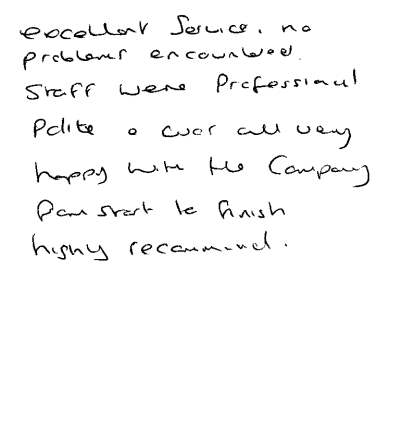 excellent service. no
problems encountered.
Staff were Professional
Polite & over all very
happy with the Company
from start to finish
highly recommend.